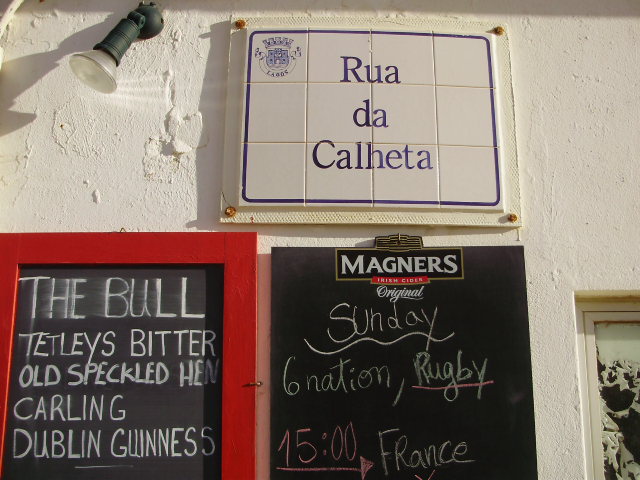 LAGOS
Rua
da
Calheta
THE BULL
TETLEYS BITTER
OLD SPECKLED HEN
CARLING
DUBLIN GUINNESS
MAGNERS
IRISH CIDER
Original
Sunday
6 nation, Rugby
15:00 FRance